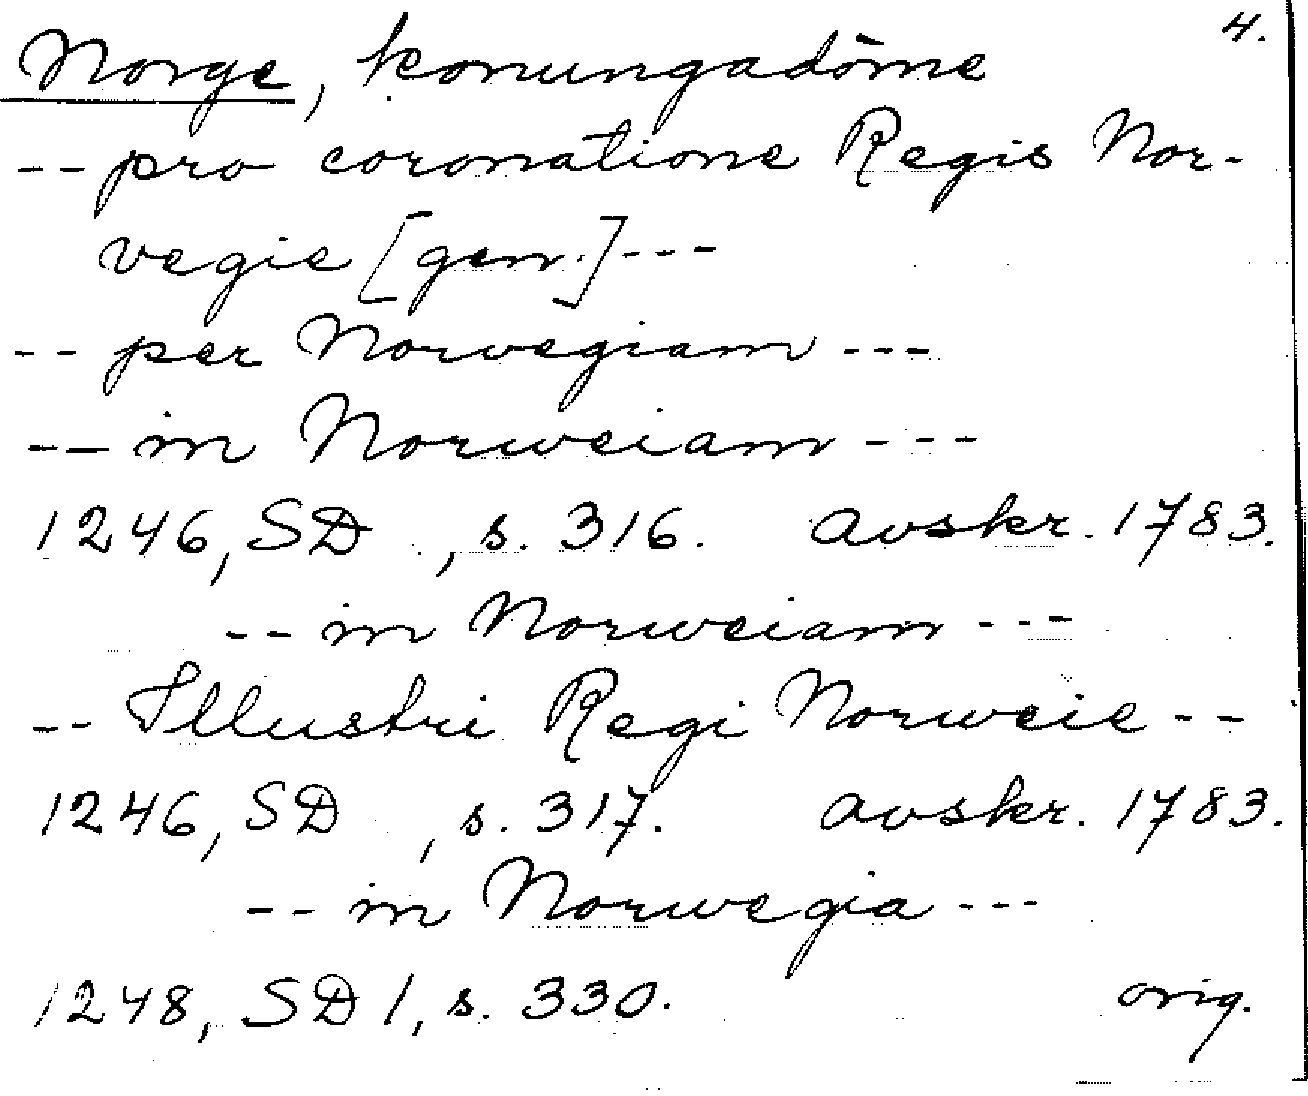 4.
Norge, konungadöme
-- pro coronatione Regis Nor-
vegie [gen.] ---
-- per Norwegiam ---
-- in Norweiam ---
1246, SD , s. 316. avskr. 1783.
-- in Norweiam ---
-- Illustri Regi Norweie --
1246, SD , s. 317. avskr. 1783.
-- in Norwegia ---
1248, SD 1, s. 330. orig.